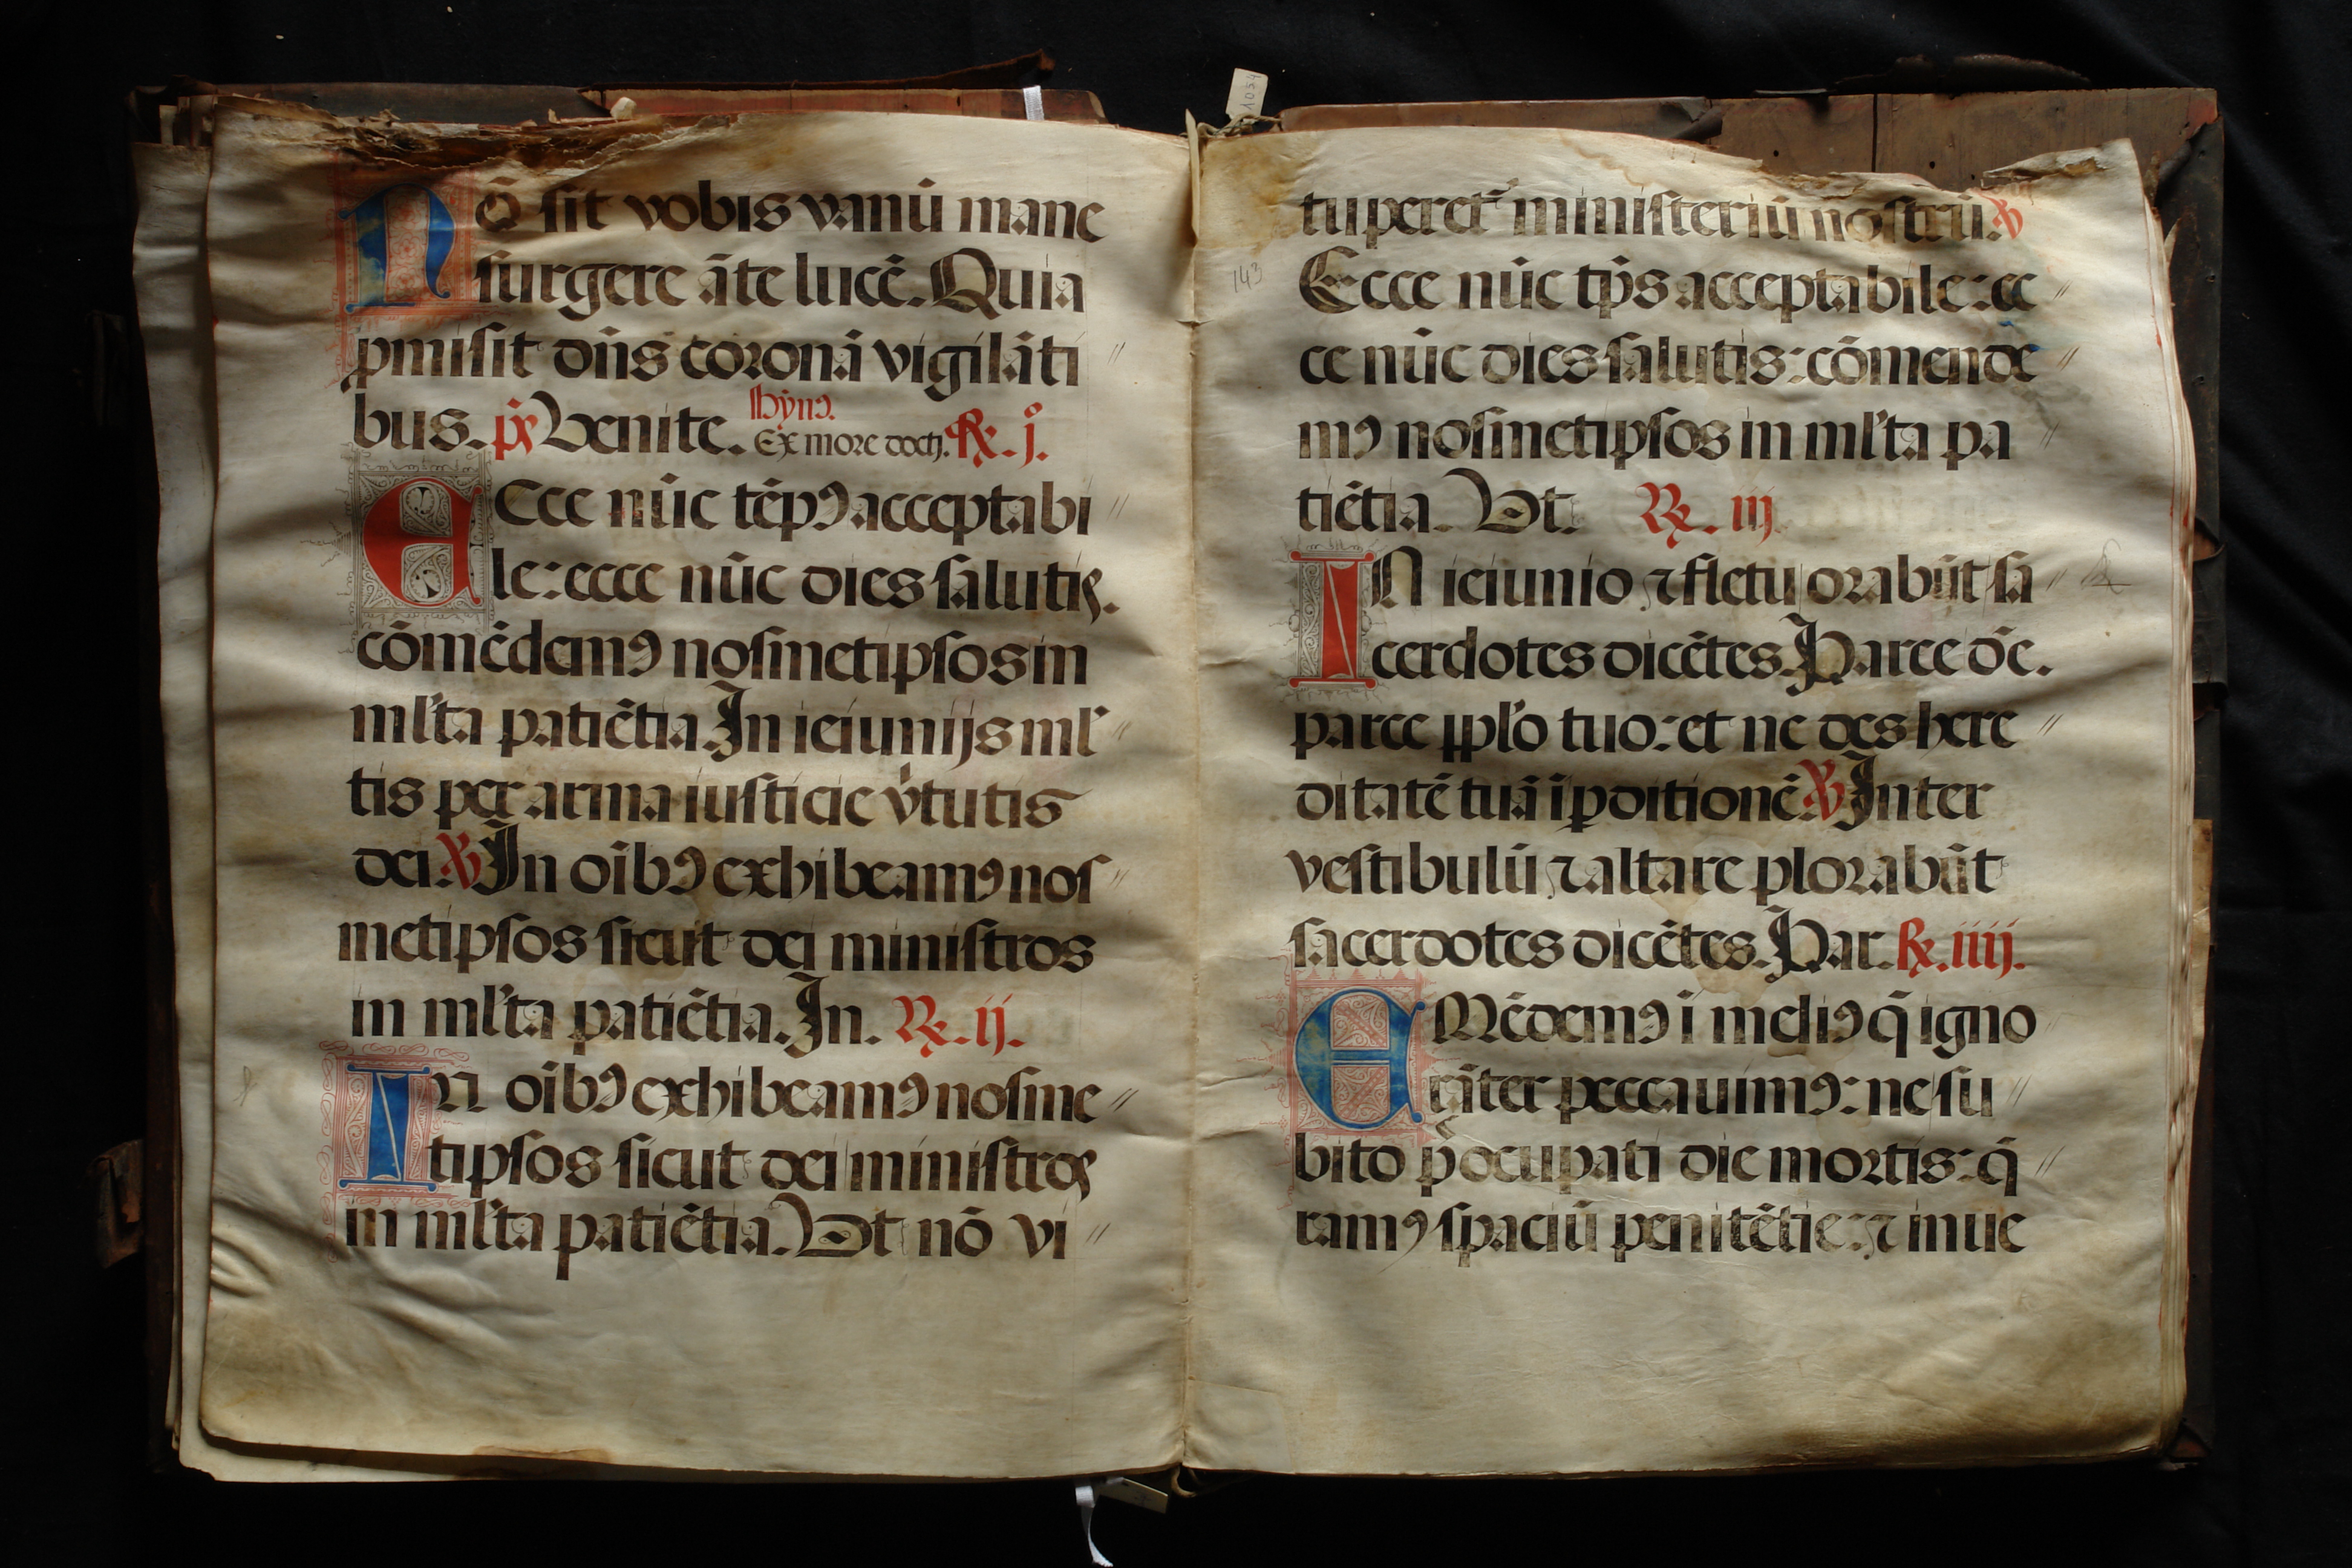 Nō sit vobis vanū mane
surgere āte lucē. Quia
ꝓmisit dn̄s coronā vigilāti
bus. p̄s Venite. Hymꝰ.
Ex more docti. ℞. j.
ECce nūc tēpꝰ acceptabi
le: ecce nūc dies salutis.
cōmēdemꝰ nosmetipsos in
ml'ta patiētia. In ieiunijs ml'
tis per arma iusticie v̓tutis
dei. ℣ In oībꝰ exhibeamꝰ nos
metipsos sicut dei ministros
in ml'ta patiētia. In. ℞. ij.
In oībꝰ exhibeamꝰ nosme
tipsos sicut dei ministros
in ml'ta patiētia. Vt nō vi
1034
143
tuperet᷑ ministeriū nostrū. ℣
Ecce nūc tp̄s acceptabile: ec
ce nūc dies salutis: cōmende
mꝰ nosmetipsos in ml'ta pa
tiētia. Vt. ℞. iij
IN ieiunio ⁊ fletu orabūt sa
cerdotes dicētes. Parce dn̄e.
parce ppl'o tuo: et ne des here
ditatē tuā ī ꝑditionē. ℣ Inter
vestibulū ⁊ altare plorabūt
sacerdotes dicētes. Par. ℞. iiij.
EMēdemꝰ ī meliꝰ q̄ igno
rāter peccauimꝰ: ne su
bito p̄ocupati die mortis: q̄
ramꝰ spaciū penitētie: ⁊ inue